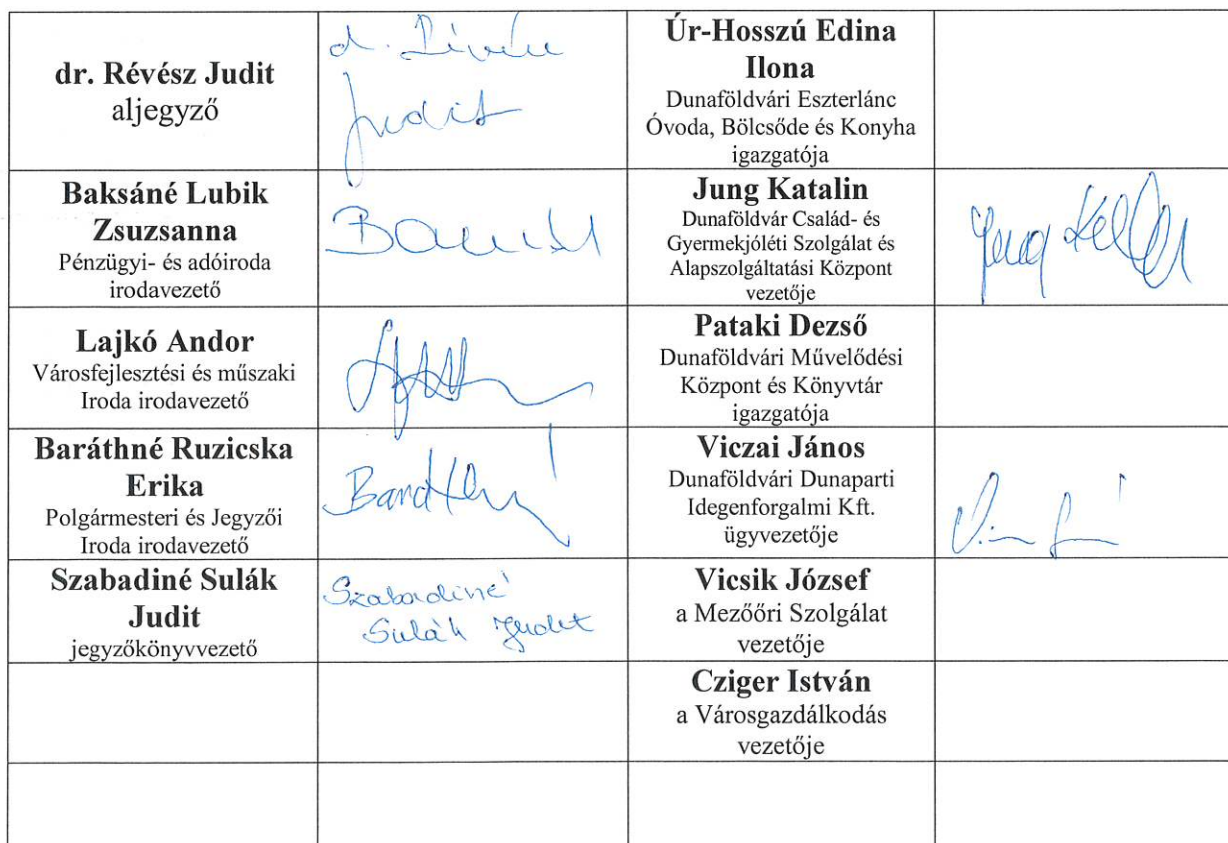 dr. Révész Judit
aljegyző
Judit
Úr-Hosszú Edina
Ilona
Dunaföldvári Eszterlánc
Óvoda, Bölcsőde és Konyha
igazgatója
Baksáné Lubik
Zsuzsanna
Pénzügyi- és adóiroda
irodavezető
Jung Katalin
Dunaföldvár Család- és
Gyermekjóléti Szolgálat és
Alapszolgáltatási Központ
vezetője
Lajkó Andor
Városfejlesztési és műszaki
Iroda irodavezető
Pataki Dezső
Dunaföldvári Művelődési
Központ és Könyvtár
igazgatója
Baráthné Ruzicska
Erika
Polgármesteri és Jegyzői
Iroda irodavezető
Viczai János
Dunaföldvári Dunaparti
Idegenforgalmi Kft.
ügyvezetője
Szabadiné Sulák
Judit
jegyzőkönyvvezető
Szabadiné
Sulák Judit
Vicsik József
a Mezőőri Szolgálat
vezetője
Cziger István
a Városgazdálkodás
vezetője